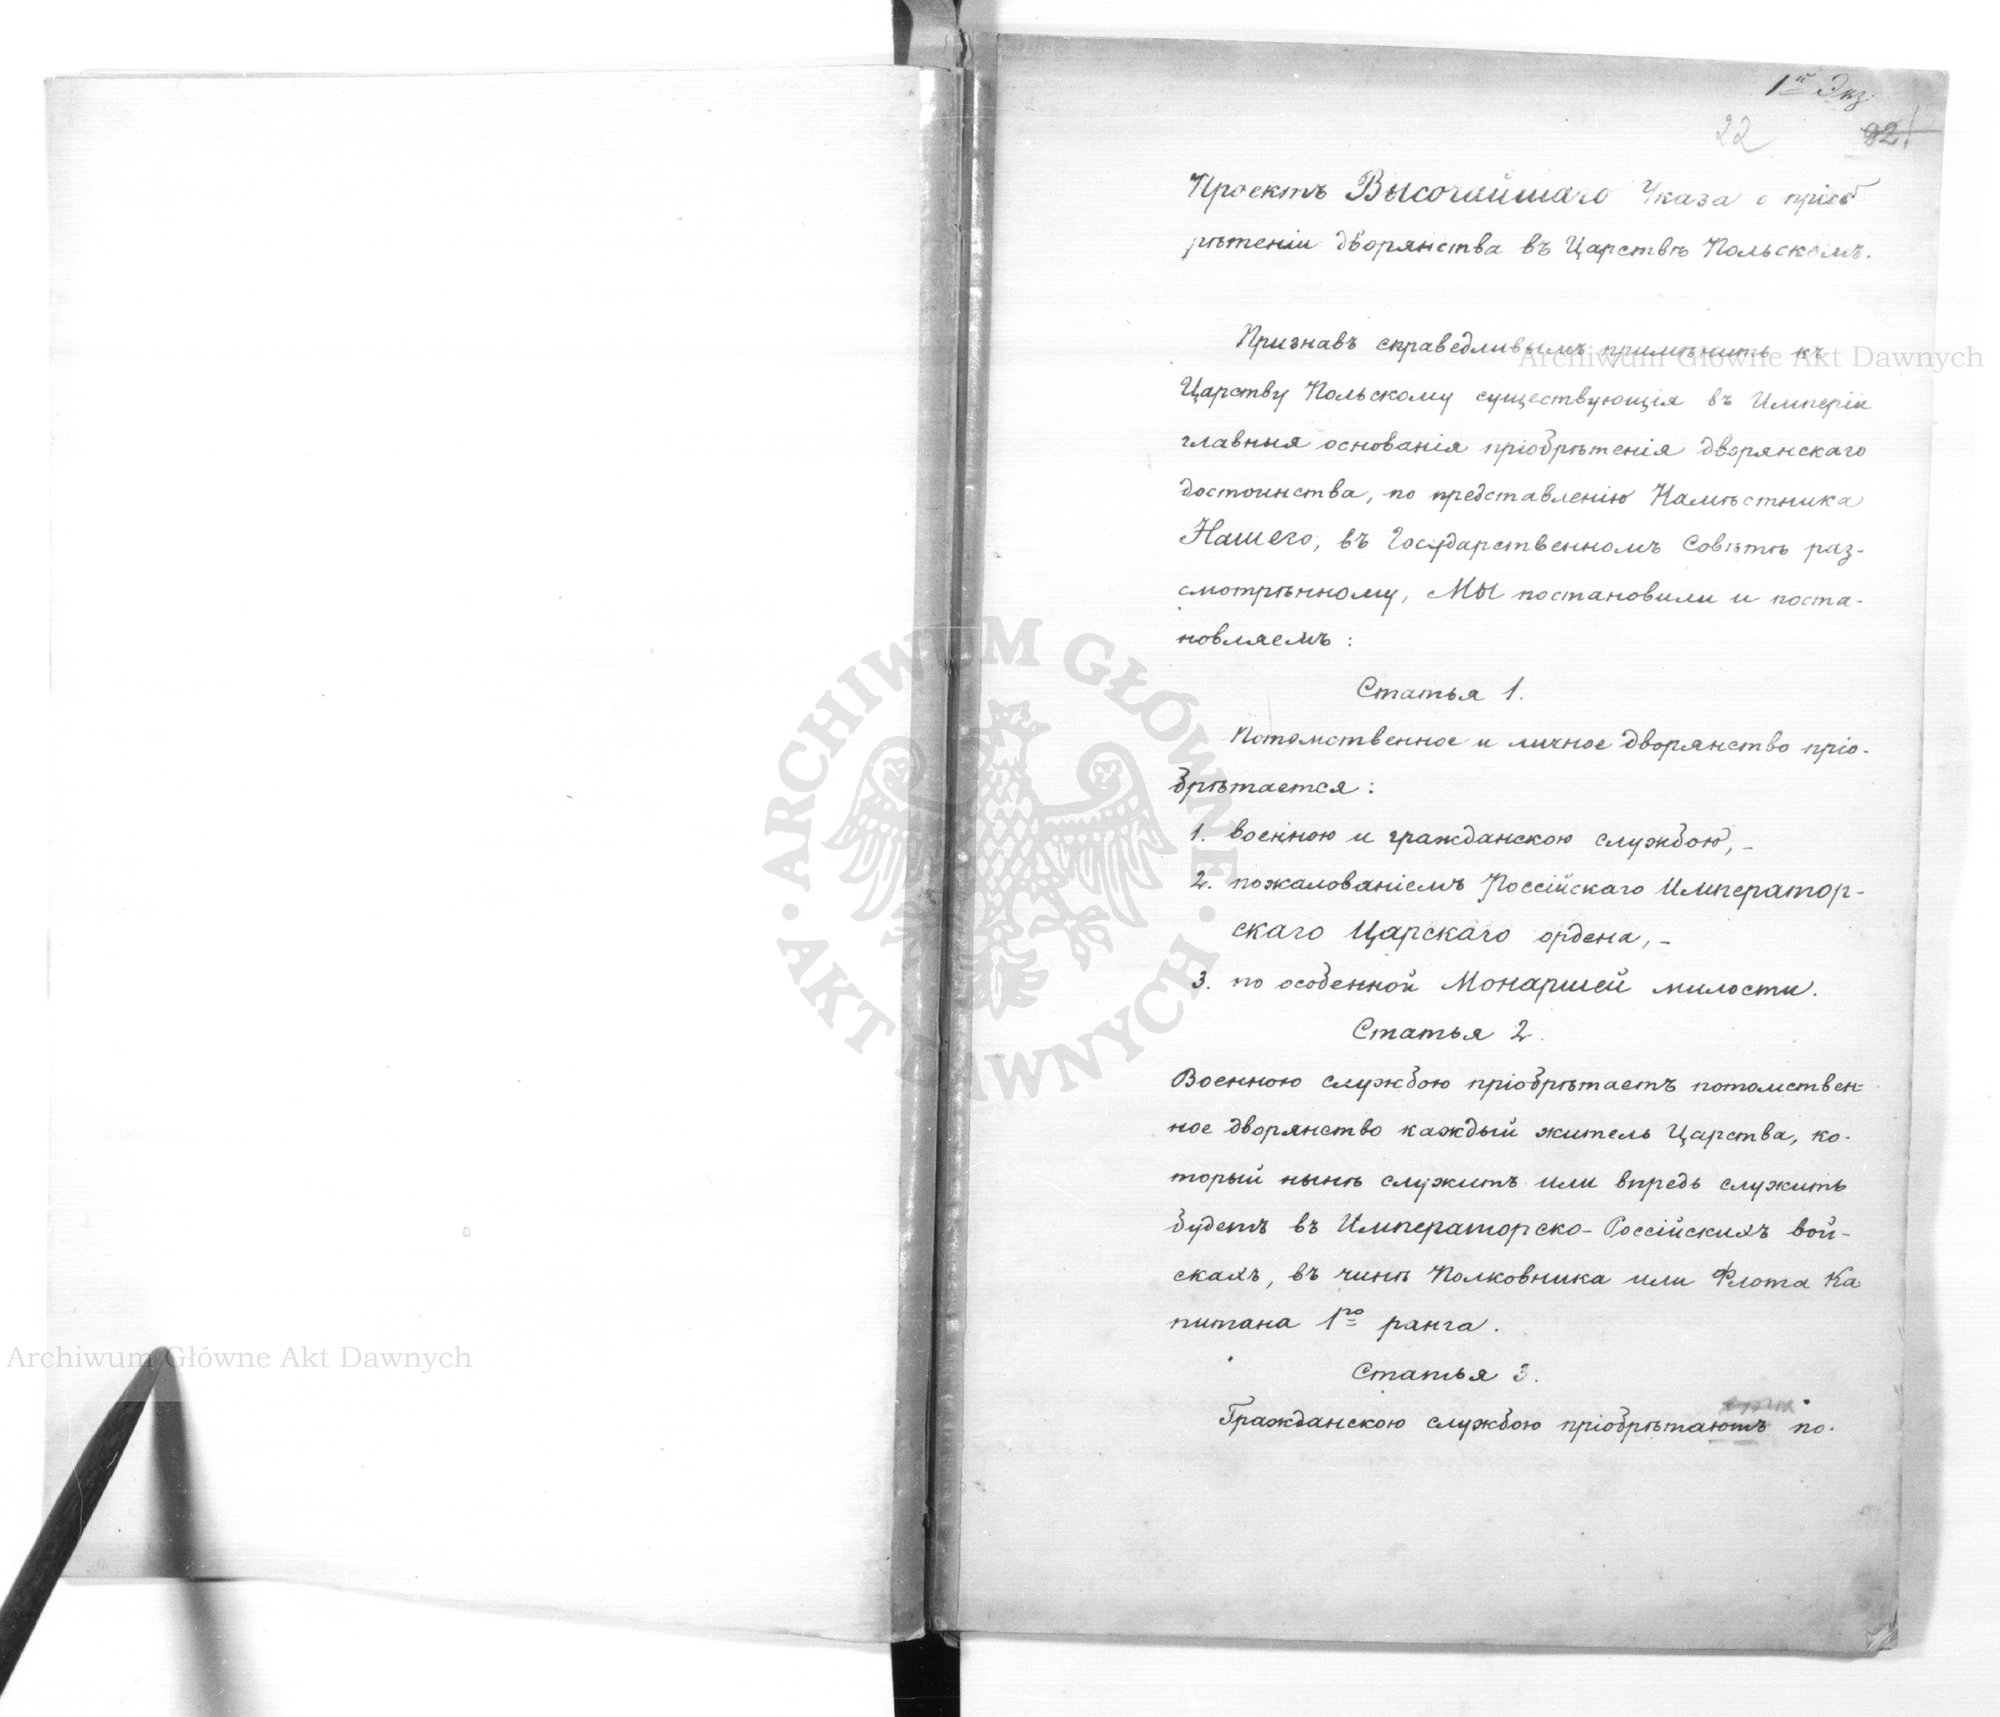 1й Экз.
22 22!
Проектъ Высочайшаго Указа о пріоб
рѣтеніи дворянства въ Царствѣ Польскомъ.
Признавъ справедливымъ примѣнить къ
Archiwum Główne Akt Dawnych
Царству Польскому существующія въ Имперіи
главныя основанія пріобрѣтенія дворянскаго
достоинства, по представленію Намѣстника
Нашего, въ Государственномъ Совѣтѣ раз-
смотрѣнному, МЫ постановили и поста-
новляемъ:
Статья 1.
Потомственное и личное дворянство пріо-
брѣтается:
1. военною и гражданскою службою, -
2. пожалованіемъ Россійскаго Император-
скаго Царскаго ордена, -
3. по особенной Монаршей милости.
Статья 2.
Военною службою пріобрѣтаетъ потомствен-
ное дворянство каждый житель Царства, ко-
торый нынѣ служитъ или впредь служить
будетъ въ Императорско-Россійскихъ вой-
скахъ, въ чинѣ Полковника или Флота Ка
питана 1го ранга.
Статья 3.
Гражданскою службою пріобрѣтаютъ по-
ARCHIWUM GŁÓWNE AKT DAWNYCH
Archiwum Główne Akt Dawnych